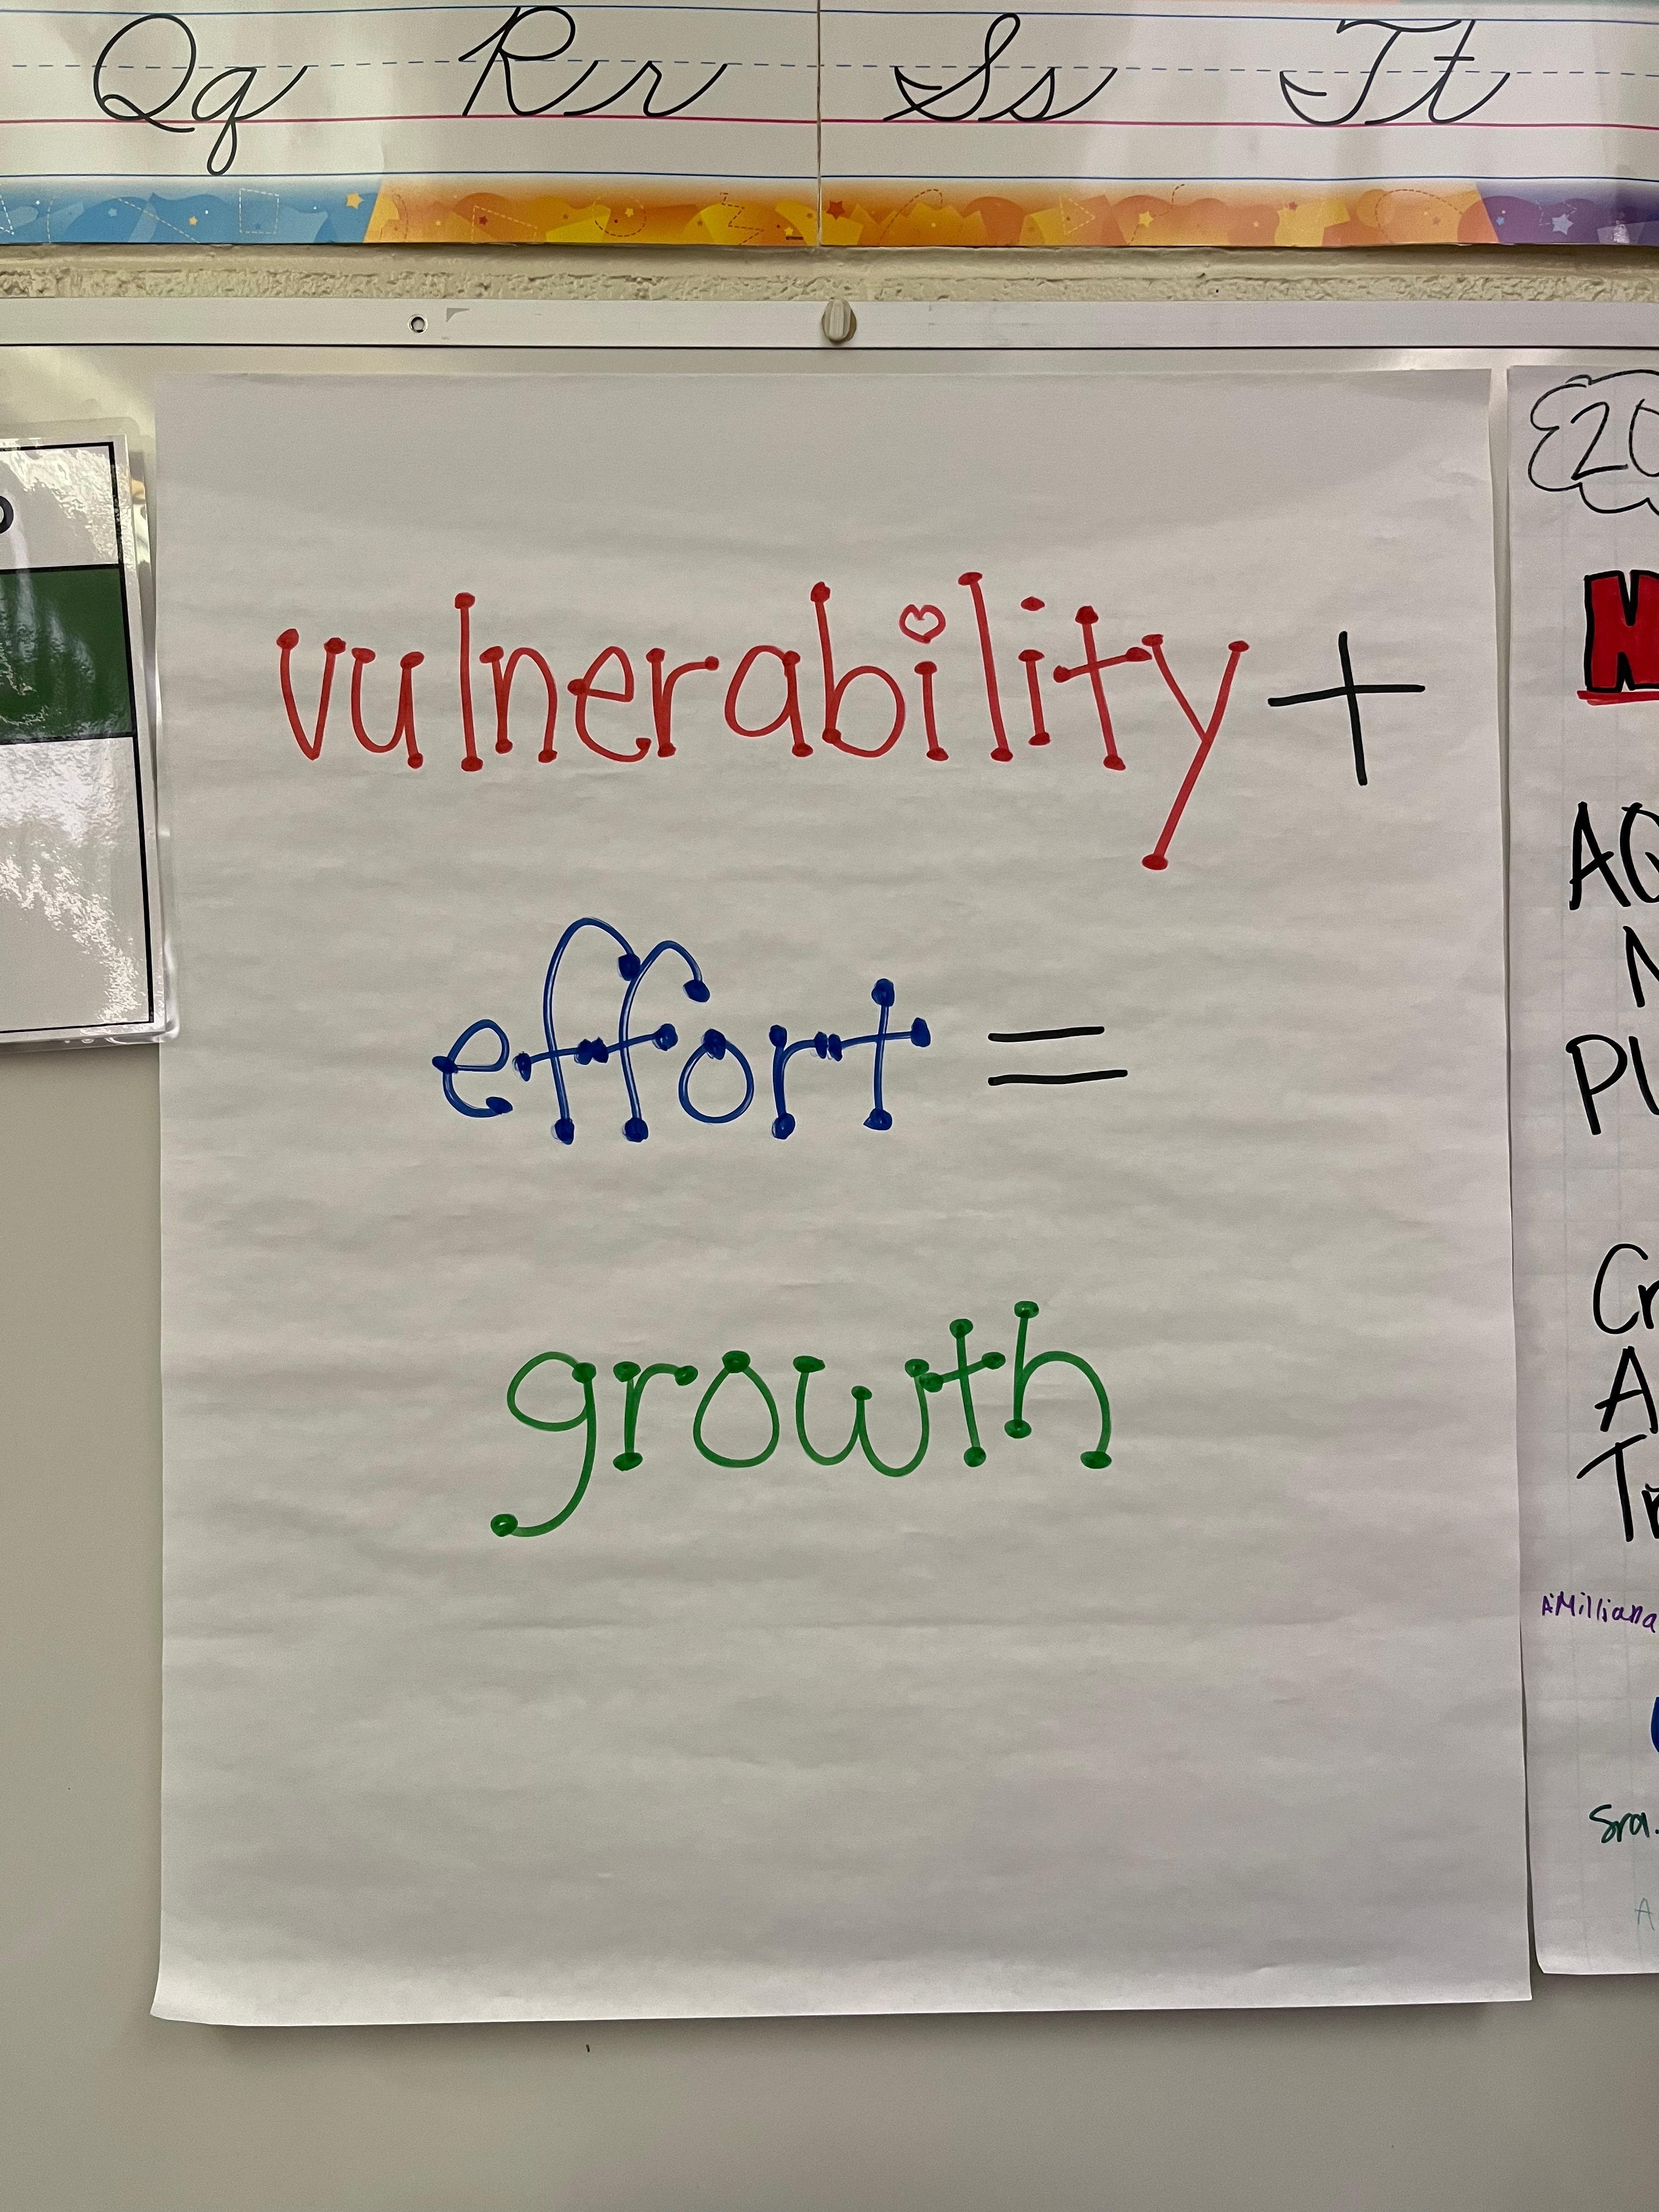 Qq Rr Ss Tt
vulnerability +
effort =
growth
20
AQ
N
PL
Cr
A
Tr
A'Milliana
Sra.
A